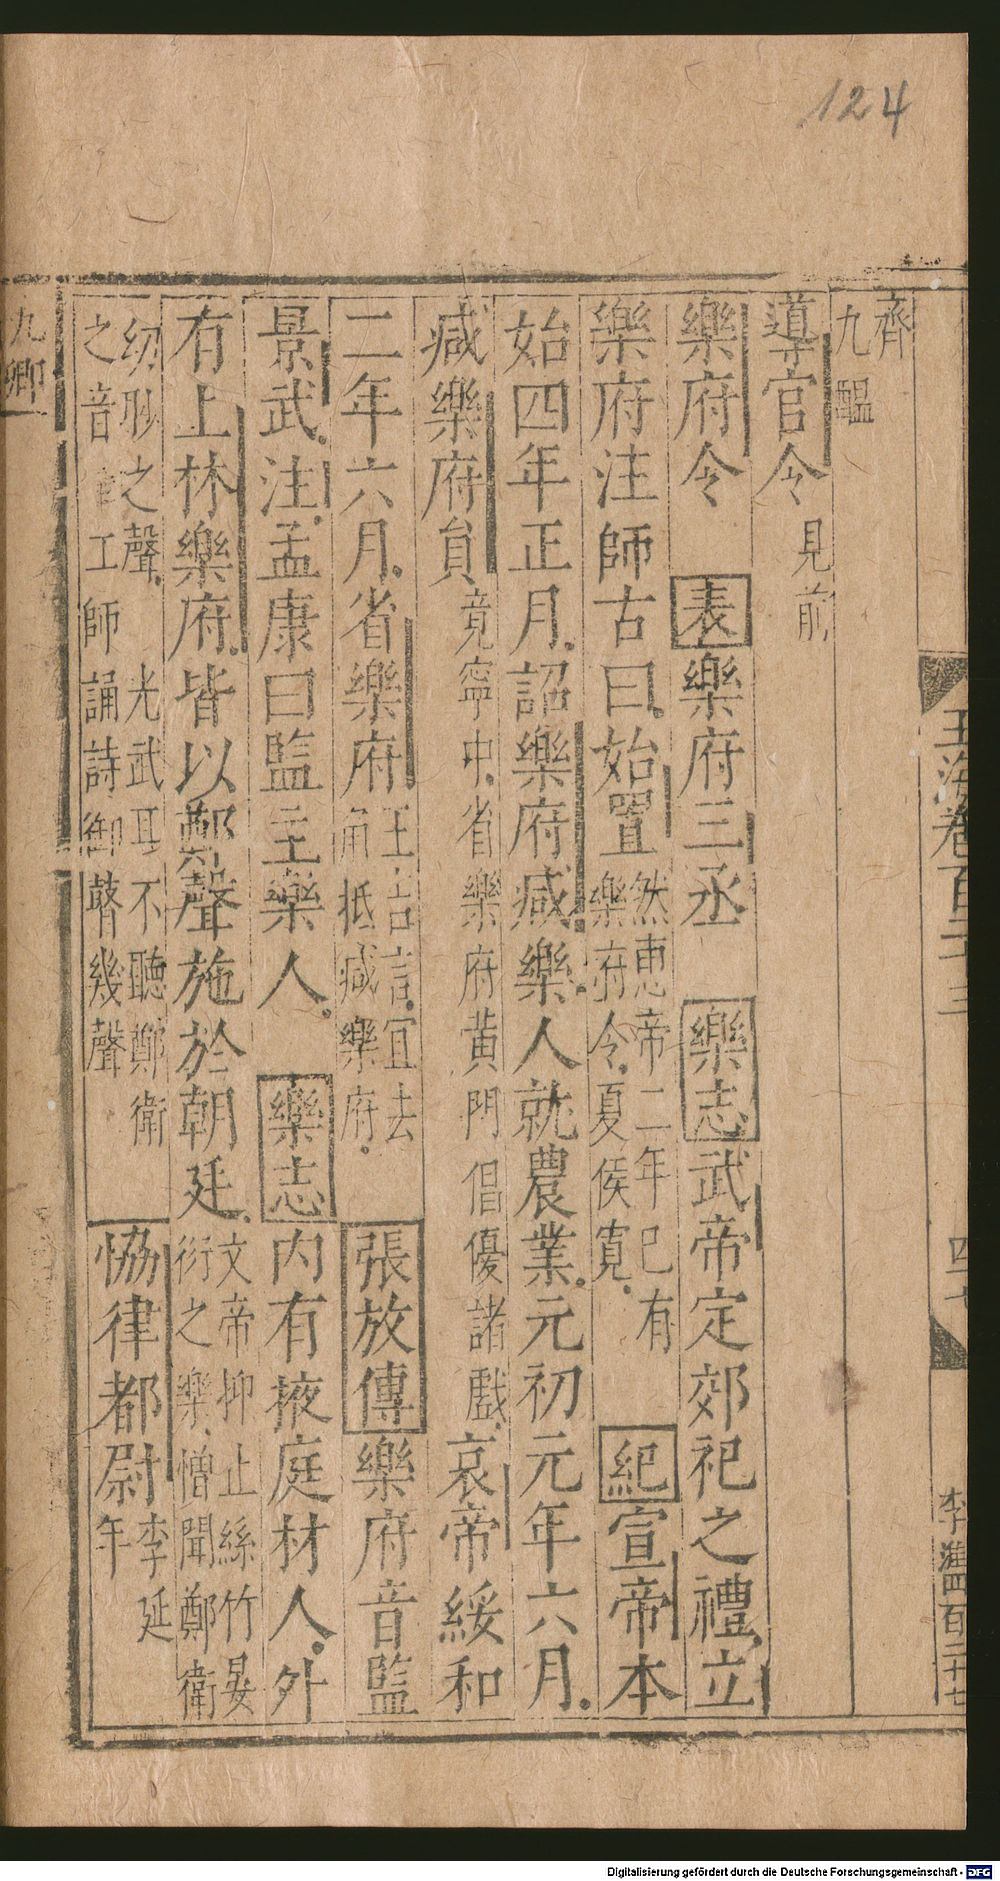 124
齊
九醖
導官令見前
樂府令 表樂府三丞 樂志武帝定郊祀之禮立
樂府注師古曰始置然恵帝二年已有樂府令夏侯寛 紀宣帝本
始四年正月詔樂府減樂人就農業元初元年六月
減樂府貟竟寧中省樂府黄門倡優諸戲哀帝綏和
二年六月省樂府王吉言宜去角抵減樂府 張放傳樂府音監
景武注孟康曰監主樂人 樂志内有掖庭材人外
有上林樂府皆以鄭聲施於朝廷文帝抑止絲竹晏衍之樂憎聞鄭衛
幼眇之聲 光武耳不聽鄭衛之音 工師誦詩御瞽幾聲 恊律都尉李延年
九卿
玉海卷百二十三
四十七
李灉四百二十七
Digitalisierung gefördert durch die Deutsche Forschungsgemeinschaft - DFG